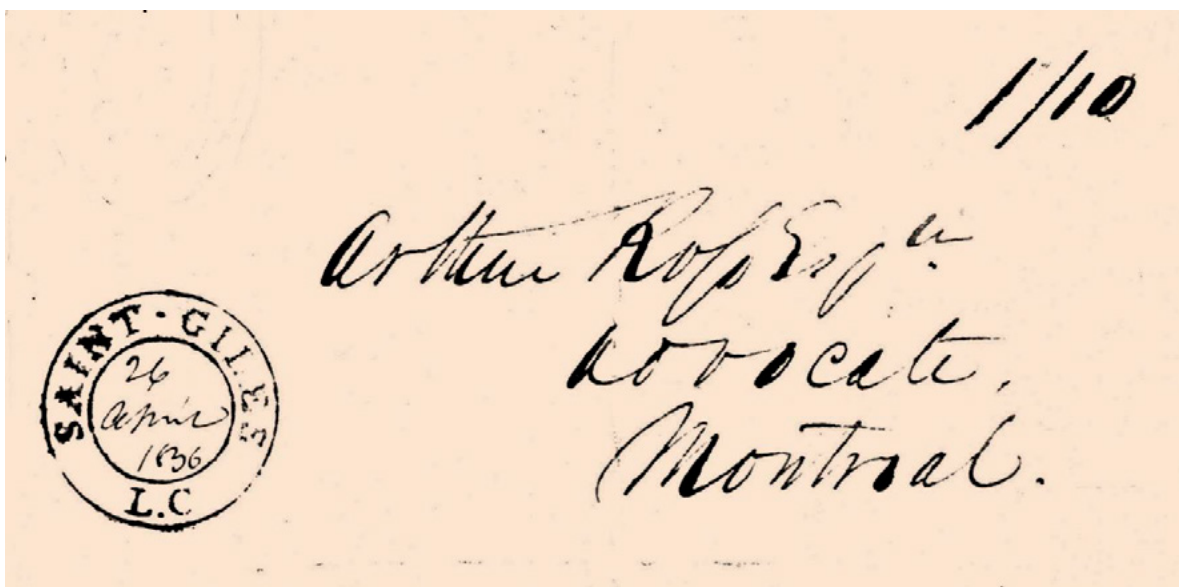 1/10
Arthur Ross Esqre
Advocate,
Montreal.
SAINT-GILLES
26
April
1836
L.C